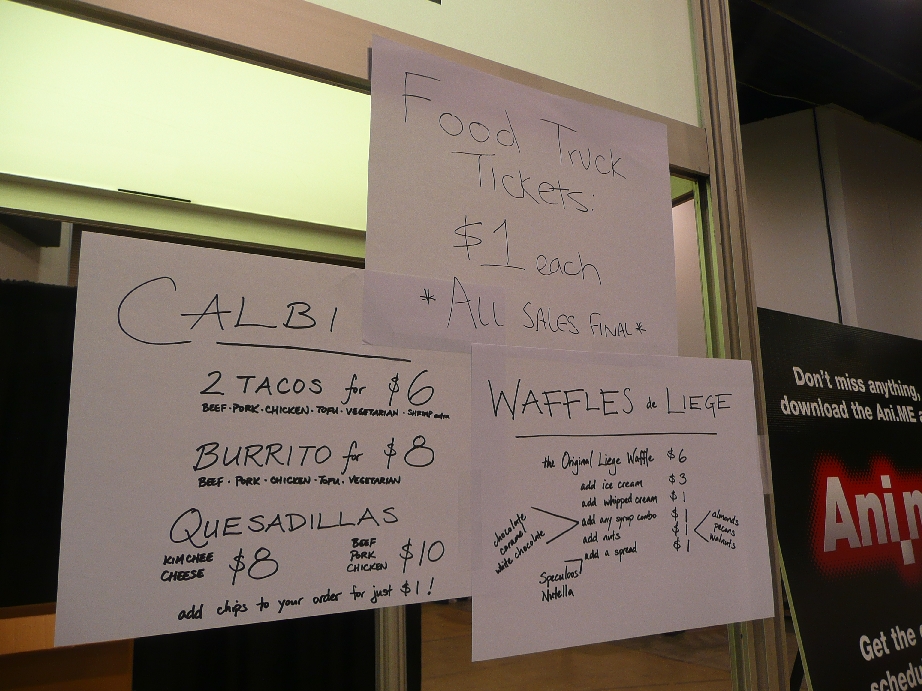 Food Truck
Tickets:
$1 each
*ALL SALES FINAL*
CALBI
2 TACOS for $6
BEEF·PORK·CHICKEN·TOFU·VEGETARIAN·SHRIMP extra
BURRITO for $8
BEEF·PORK·CHICKEN·TOFU·VEGETARIAN
QUESADILLAS
KIMCHEE
CHEESE
$8
BEEF
PORK
CHICKEN
$10
add chips to your order for just $1!
WAFFLES de LIEGE
the Original Liege Waffle $6
add ice cream $3
add whipped cream $1
add any syrup combo $1
add nuts $1
add a spread $1
chocolate
caramel
white chocolate
almonds
pecans
walnuts
Speculoos
Nutella
Don't miss anything,
download the Ani.ME
Ani
Get the